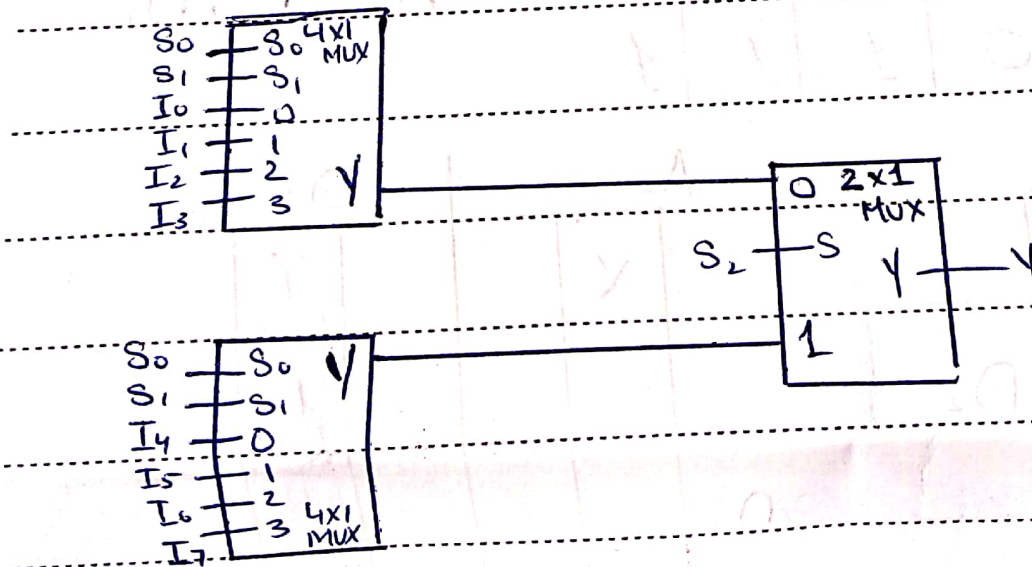 S0 S0 4x1
MUX
S1 S1
I0 0
I1 1
I2 2 Y
I3 3
0 2x1
MUX
S2 S
Y Y
1
S0 S0 Y
S1 S1
I4 0
I5 1
I6 2
I7 3 4x1
MUX